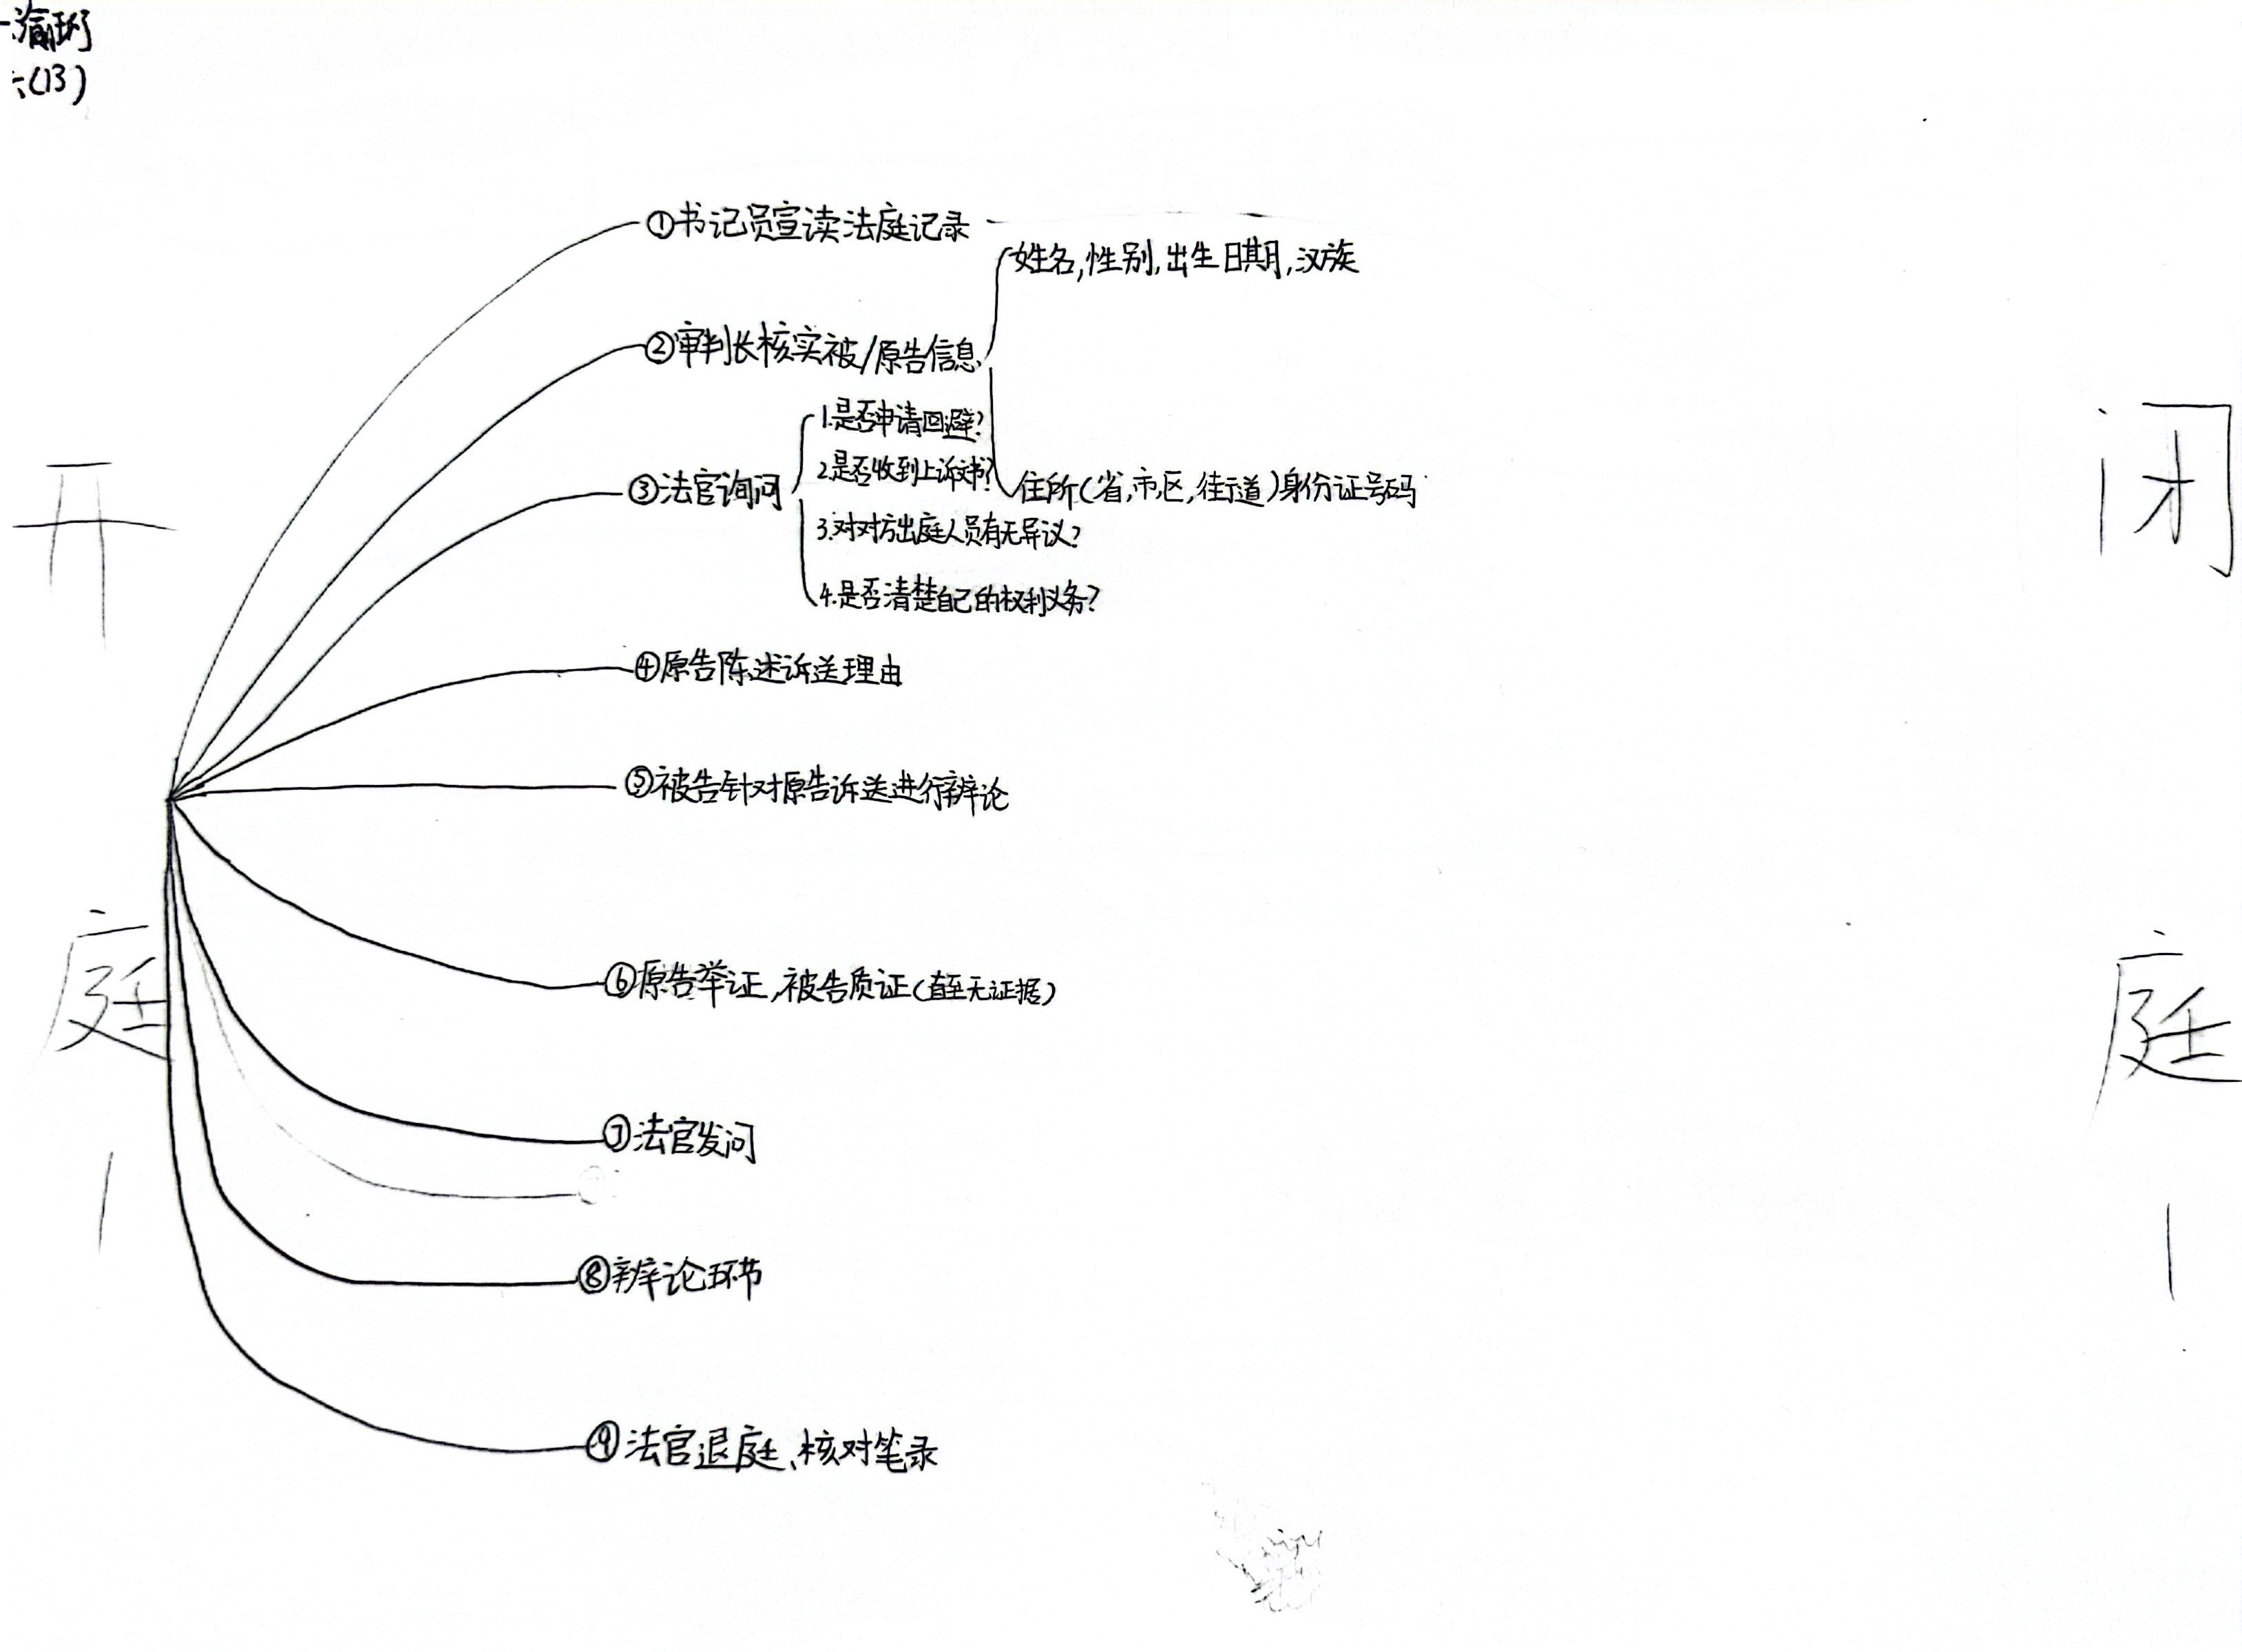 渝珂
六(13)
①书记员宣读法庭记录
②审判长核实被/原告信息
姓名,性别,出生日期,汉族
住所(省,市,区,街道)身份证号码
③法官询问
1.是否申请回避?
2.是否收到上诉文书?
3.对对方出庭人员有无异议?
4.是否清楚自己的权利义务?
④原告陈述诉送理由
⑤被告针对原告诉送进行辩论
⑥原告举证,被告质证(直至无证据)
⑦法官发问
⑧辩论环节
⑨法官退庭、核对笔录
开庭
闭庭